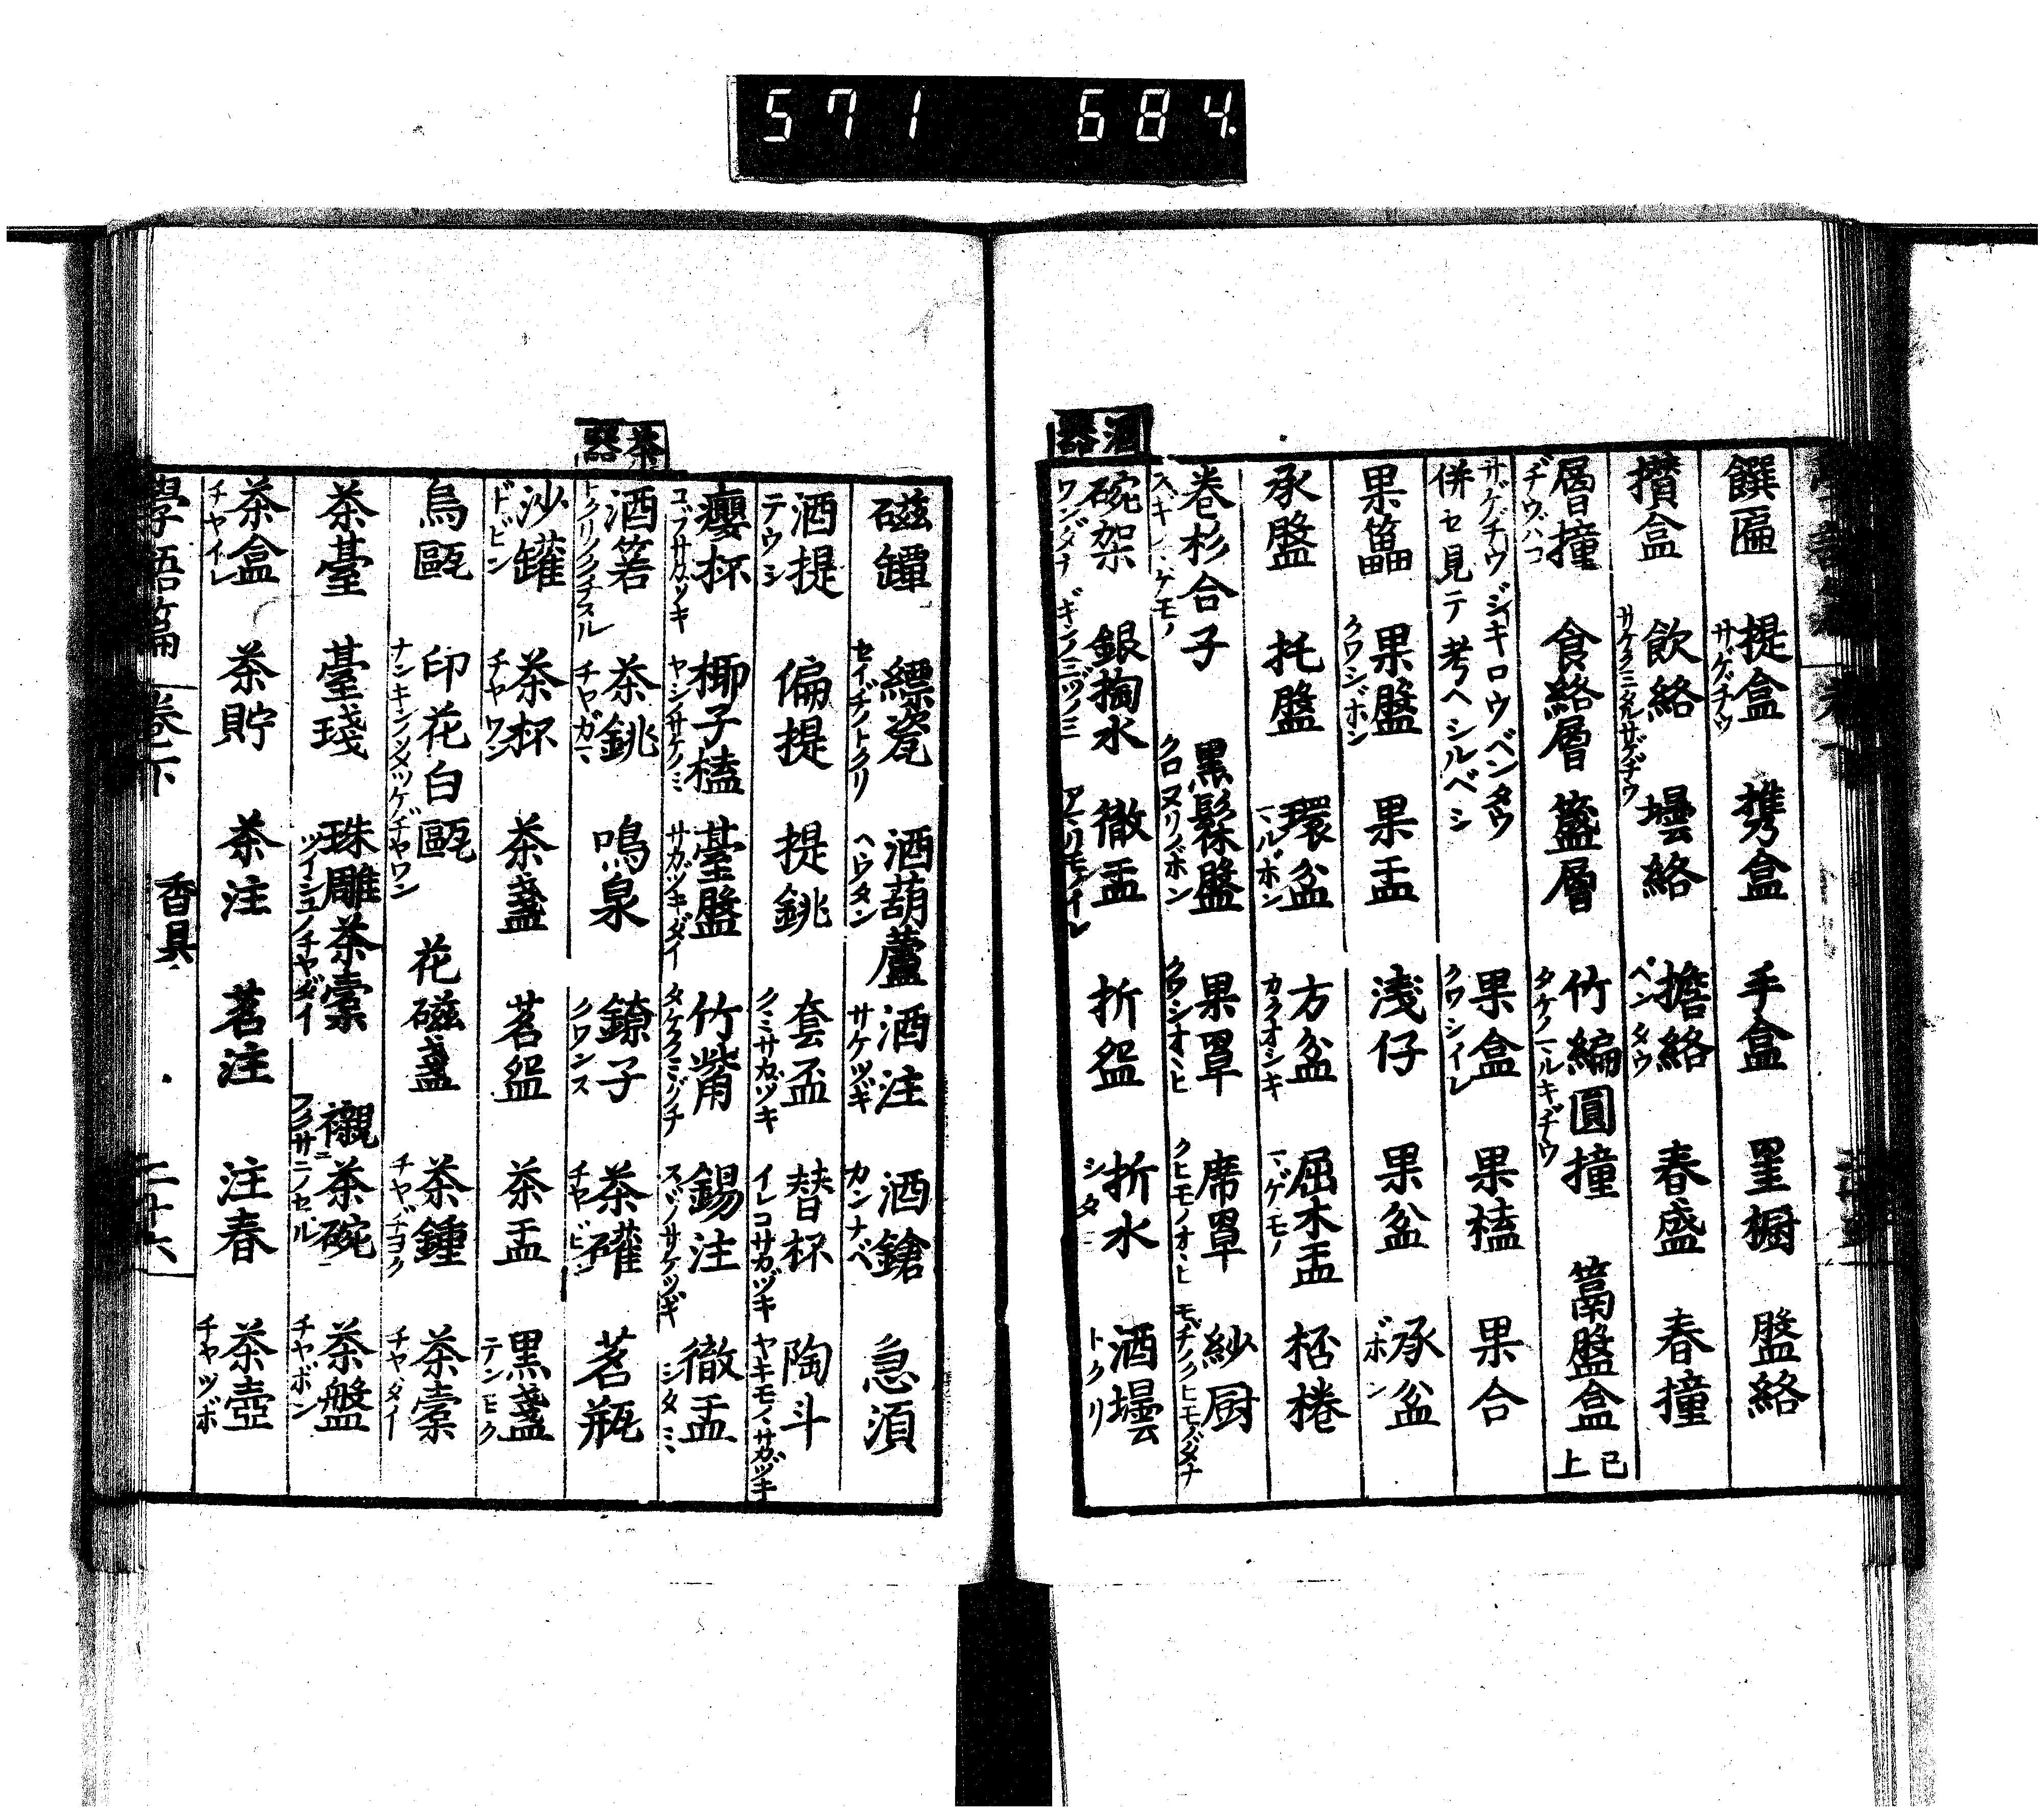 571 684.
饌匾 提盒サゲヂウ 携盒 手盒 罣橱 盤絡
攅盒 飲絡サケクミタルサゲヂウ 罎絡 擔絡ベンタウ 春盛 春撞
層撞ヂウバコ 食絡層 簋層 竹編圓撞タケノマルキヂウ 篇盤盒 已上
サゲヂウジキロウベンタウ
併セ見テ考ヘシルベシ 果盒クワシイレ 果榼 果合
果簠 果盤クワシボン 果盂 淺仔 果盆 承盆ボン
承盤 托盤 環盆マルボン 方盆カクオシキ 屈木盂マゲモノ 桮棬
卷杉合子スギノマゲモノ 黒髹盤クロヌリノボン 果罩クワシオヽヒ 席罩クヒモノオヽヒ 紗厨モヂノクヒモノダナ
酒器
碗架ワンダナ 銀掏水ギンノミヅノミ 徹盂アマリモノイレ 折盌 折水シタミ 酒罎トクリ
磁罈 縹瓷セイヂノトクリ 酒葫蘆ヘウタン 酒注サケツギ 酒鎗カンナベ 急須
酒提テウシ 偏提 提銚 套盃クミサカヅキ 替杯イレコサカヅキ 陶斗ヤキモノヽサカヅキ
癭杯コブサカヅキ 椰子榼ヤシノサケノミ 䑓盤サカヅキダイ 竹觜タケノミグチ 錫注スヾノサケツギ 徹盂シタミ
酒箬トクリノクチスル
茶器
茶銚チヤガマ 鳴泉 鐐子クワンス 茶䍜チヤビン 茗瓶
沙罐ドビン 茶杯チヤワン 茶盞 茗盌 茶盂 黒盞テンモク
烏甌 印花白甌ナンキンソメツケヂヤワン 花磁盞 茶鍾チヤヂヨク 茶橐チヤダイ
茶䑓 䑓琖 珠雕茶橐ツイシユノチヤダイ 襯ニ茶碗フクサニノセル 茶盤チヤボン
茶盒チヤイレ 茶貯 茶注 茗注 注春 茶壺チヤツボ
學語篇 卷下 香具 二十六